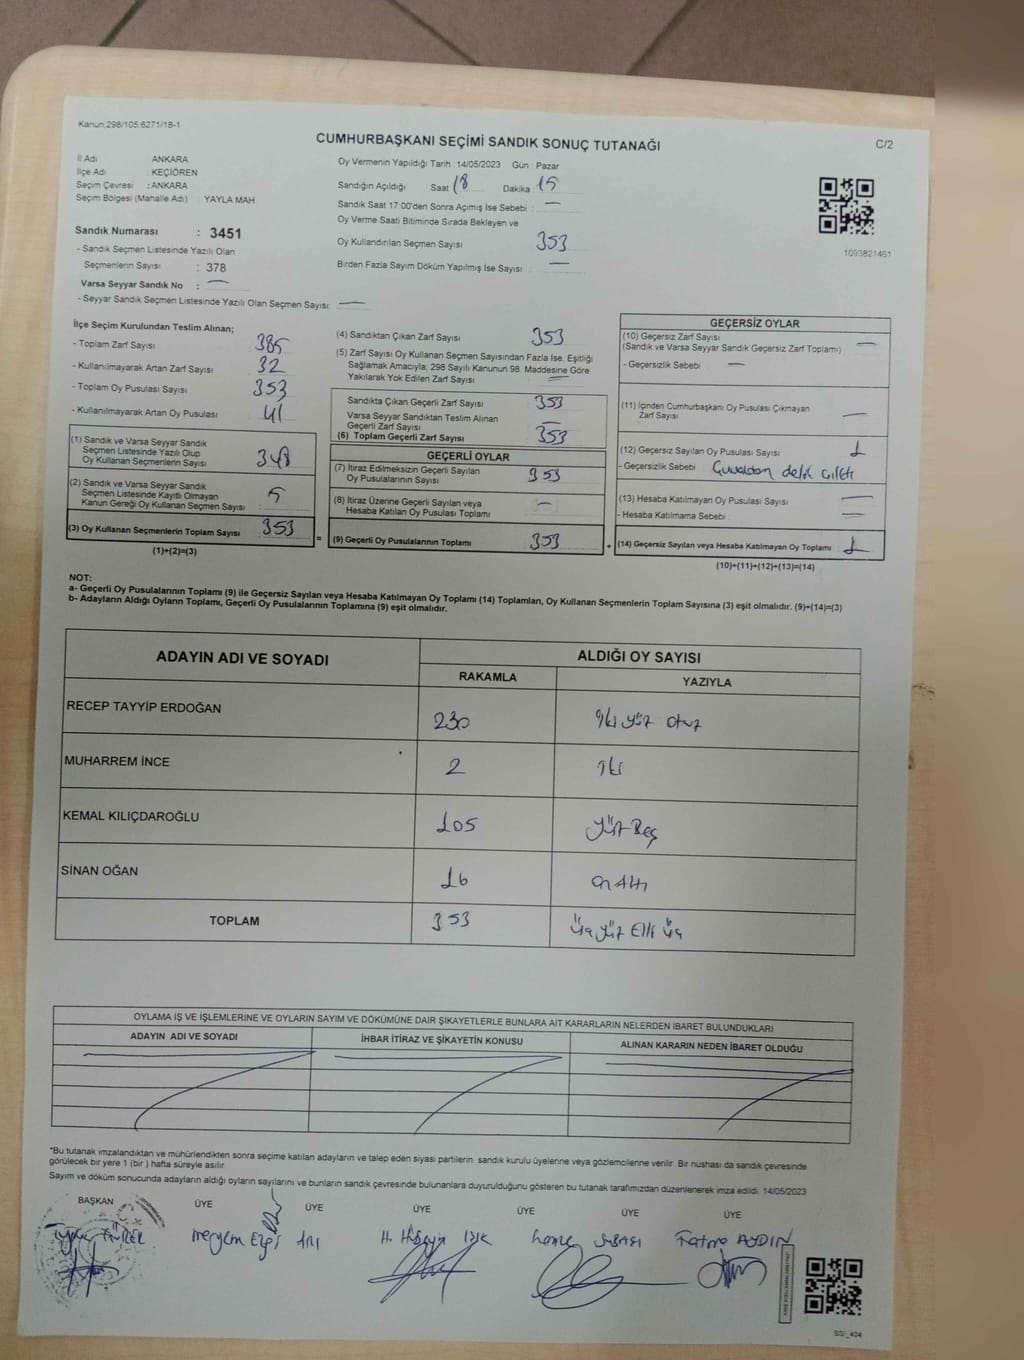 Kanun:298/105:6271/18-1
CUMHURBAŞKANI SEÇİMİ SANDIK SONUÇ TUTANAĞI
C/2
İl Adı ANKARA
İlçe Adı KEÇİÖREN
Seçim Çevresi : ANKARA
Seçim Bölgesi (Mahalle Adı) YAYLA MAH.
Sandık Numarası : 3451
- Sandık Seçmen Listesinde Yazılı Olan
Seçmenlerin Sayısı : 378
Varsa Seyyar Sandık No : —
- Seyyar Sandık Seçmen Listesinde Yazılı Olan Seçmen Sayısı: —
Oy Vermenin Yapıldığı Tarih 14/05/2023 Gün : Pazar
Sandığın Açıldığı Saat 18 Dakika 15
Sandık Saat 17:00'den Sonra Açımış İse Sebebi : —
Oy Verme Saati Bitiminde Sırada Bekleyen ve
Oy Kullandırılan Seçmen Sayısı 353
Birden Fazla Sayım Döküm Yapılmış İse Sayısı : —
1093821461
İlçe Seçim Kurulundan Teslim Alınan;
- Toplam Zarf Sayısı 385
- Kullanılmayarak Artan Zarf Sayısı 32
- Toplam Oy Pusulası Sayısı 353
- Kullanılmayarak Artan Oy Pusulası 41
(1) Sandık ve Varsa Seyyar Sandık
Seçmen Listesinde Yazılı Olup
Oy Kullanan Seçmenlerin Sayısı 348
(2) Sandık ve Varsa Seyyar Sandık
Seçmen Listesinde Kayıtlı Olmayan
Kanun Gereği Oy Kullanan Seçmen Sayısı : 5
(3) Oy Kullanan Seçmenlerin Toplam Sayısı 353
(1)+(2)=(3)
=
(4) Sandıktan Çıkan Zarf Sayısı 353
(5) Zarf Sayısı Oy Kullanan Seçmen Sayısından Fazla İse, Eşitliği
Sağlamak Amacıyla; 298 Sayılı Kanunun 98. Maddesine Göre
Yakılarak Yok Edilen Zarf Sayısı —
Sandıkta Çıkan Geçerli Zarf Sayısı 353
Varsa Seyyar Sandıktan Teslim Alınan
Geçerli Zarf Sayısı —
(6) Toplam Geçerli Zarf Sayısı 353
GEÇERLİ OYLAR
(7) İtiraz Edilmeksizin Geçerli Sayılan
Oy Pusulalarının Sayısı 353
(8) İtiraz Üzerine Geçerli Sayılan veya
Hesaba Katılan Oy Pusulası Toplamı —
(9) Geçerli Oy Pusulalarının Toplamı 353
+
GEÇERSİZ OYLAR
(10) Geçersiz Zarf Sayısı
(Sandık ve Varsa Seyyar Sandık Geçersiz Zarf Toplamı) —
- Geçersizlik Sebebi —
(11) İçinden Cumhurbaşkanı Oy Pusulası Çıkmayan
Zarf Sayısı —
(12) Geçersiz Sayılan Oy Pusulası Sayısı 1
- Geçersizlik Sebebi
(13) Hesaba Katılmayan Oy Pusulası Sayısı —
- Hesaba Katılmama Sebebi —
(14) Geçersiz Sayılan veya Hesaba Katılmayan Oy Toplamı 1
(10)+(11)+(12)+(13)=(14)
NOT:
a- Geçerli Oy Pusulalarının Toplamı (9) ile Geçersiz Sayılan veya Hesaba Katılmayan Oy Toplamı (14) Toplamları, Oy Kullanan Seçmenlerin Toplam Sayısına (3) eşit olmalıdır. (9)+(14)=(3)
b- Adayların Aldığı Oyların Toplamı, Geçerli Oy Pusulalarının Toplamına (9) eşit olmalıdır.
ADAYIN ADI VE SOYADI
ALDIĞI OY SAYISI
RAKAMLA YAZIYLA
RECEP TAYYİP ERDOĞAN 230 iki yüz otuz
MUHARREM İNCE 2 iki
KEMAL KILIÇDAROĞLU 105 Yüz Beş
SİNAN OĞAN 16 on Altı
TOPLAM 353 üç yüz Elli üç
OYLAMA İŞ VE İŞLEMLERİNE VE OYLARIN SAYIM VE DÖKÜMÜNE DAİR ŞİKAYETLERLE BUNLARA AİT KARARLARIN NELERDEN İBARET BULUNDUKLARI
ADAYIN ADI VE SOYADI İHBAR İTİRAZ VE ŞİKAYETİN KONUSU ALINAN KARARIN NEDEN İBARET OLDUĞU
*Bu tutanak imzalandıktan ve mühürlendikten sonra seçime katılan adayların ve talep eden siyasi partilerin sandık kurulu üyelerine veya gözlemcilerine verilir. Bir nüshası da sandık çevresinde
görülecek bir yere 1 (bir ) hafta süreyle asılır
Sayım ve döküm sonucunda adayların aldığı oyların sayılarını ve bunların sandık çevresinde bulunanlara duyurulduğunu gösteren bu tutanak tarafımızdan düzenlenerek imza edildi. 14/05/2023
BAŞKAN ÜYE ÜYE ÜYE ÜYE ÜYE ÜYE
Meryem Ezgi ARI H. Hüseyin IŞIK Fatma AYDIN
SSI_404